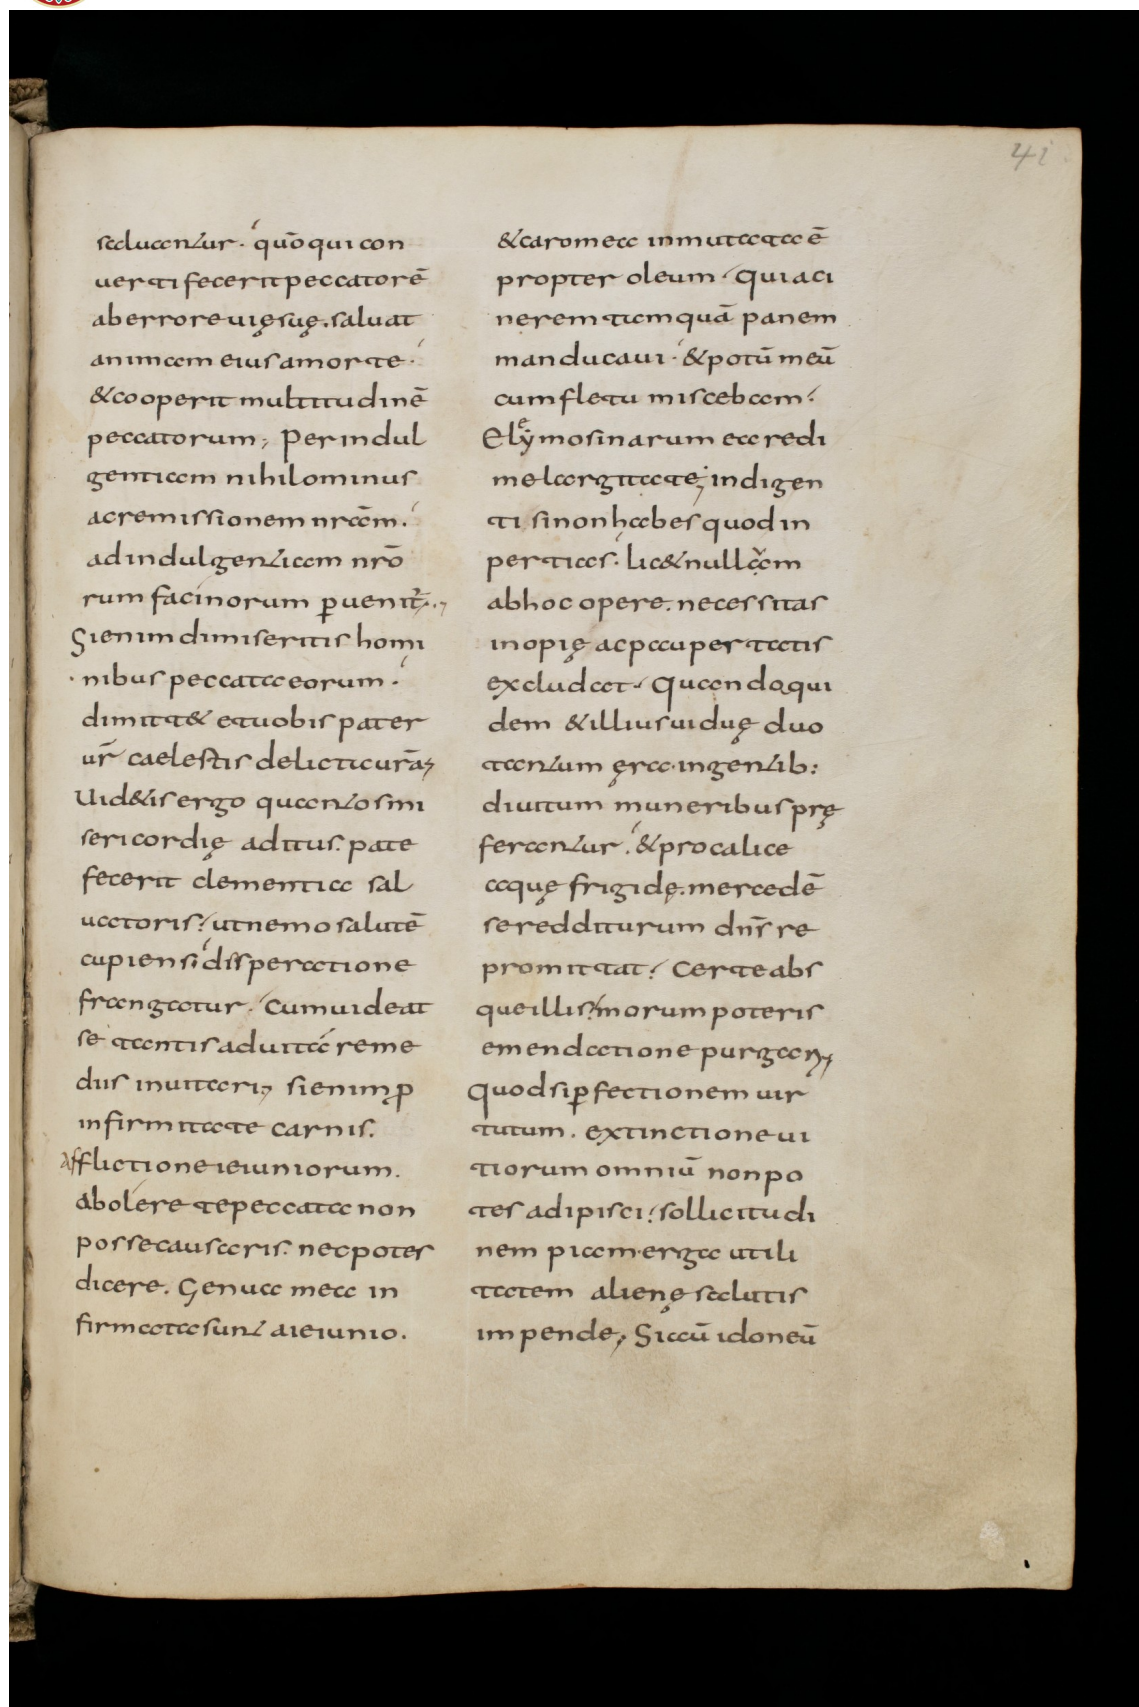 41
saluantur· quō qui con
uerti fecerit peccatorē
ab errore uię suę. saluat
animam eius a morte·
& cooperit multitudinē
peccatorum; Per indul
gentiam nihilominus
ac remissionem nr̄am.
ad indulgentiam nr̄o
rum facinorum ꝑuenit̄;
Si enim dimiseritis homi
nibus peccata eorum·
dimitt& et uobis pater
ur̄ caelestis delicta ur̄a;
Uid&is ergo quantos mi
sericordię aditus. pate
fecerit clementia sal
uatoris; ut nemo salutē
cupiens disperatione
frangatur· Cum uideat
se tantis ad uitā reme
diis inuitari; si enim ꝓ
infirmitate carnis.
Afflictione ieiuniorum.
abolere te peccata non
posse causaris. nec potes
dicere. Genua mea in
firmata sunt a ieiunio.
& caro mea inmutata ē
propter oleum· Quia ci
nerem tamquā panem
manducaui· & potū meū
cum fletu miscebam;
Elẏemosinarum ea redi
me largitate; indigen
ti si non habes quod in
pertias· lic& nullam
ab hoc opere. necessitas
inopię ac paupertatis
excludat· Quando qui
dem & illius uiduę duo
tantum ęra· ingentib:
diuitum muneribus prę
ferantur. & pro calice
aquę frigidę. mercedē
se redditurum dn̄s re
promittat; Certe abs
que illis; morum poteris
emendatione purgari;
Quod si ꝑfectionem uir
tutum. extinctione ui
tiorum omniū non po
tes adipisci; sollicitudi
nem piam· erga utili
tatem alienę salutis
impende; Si cū idoneū